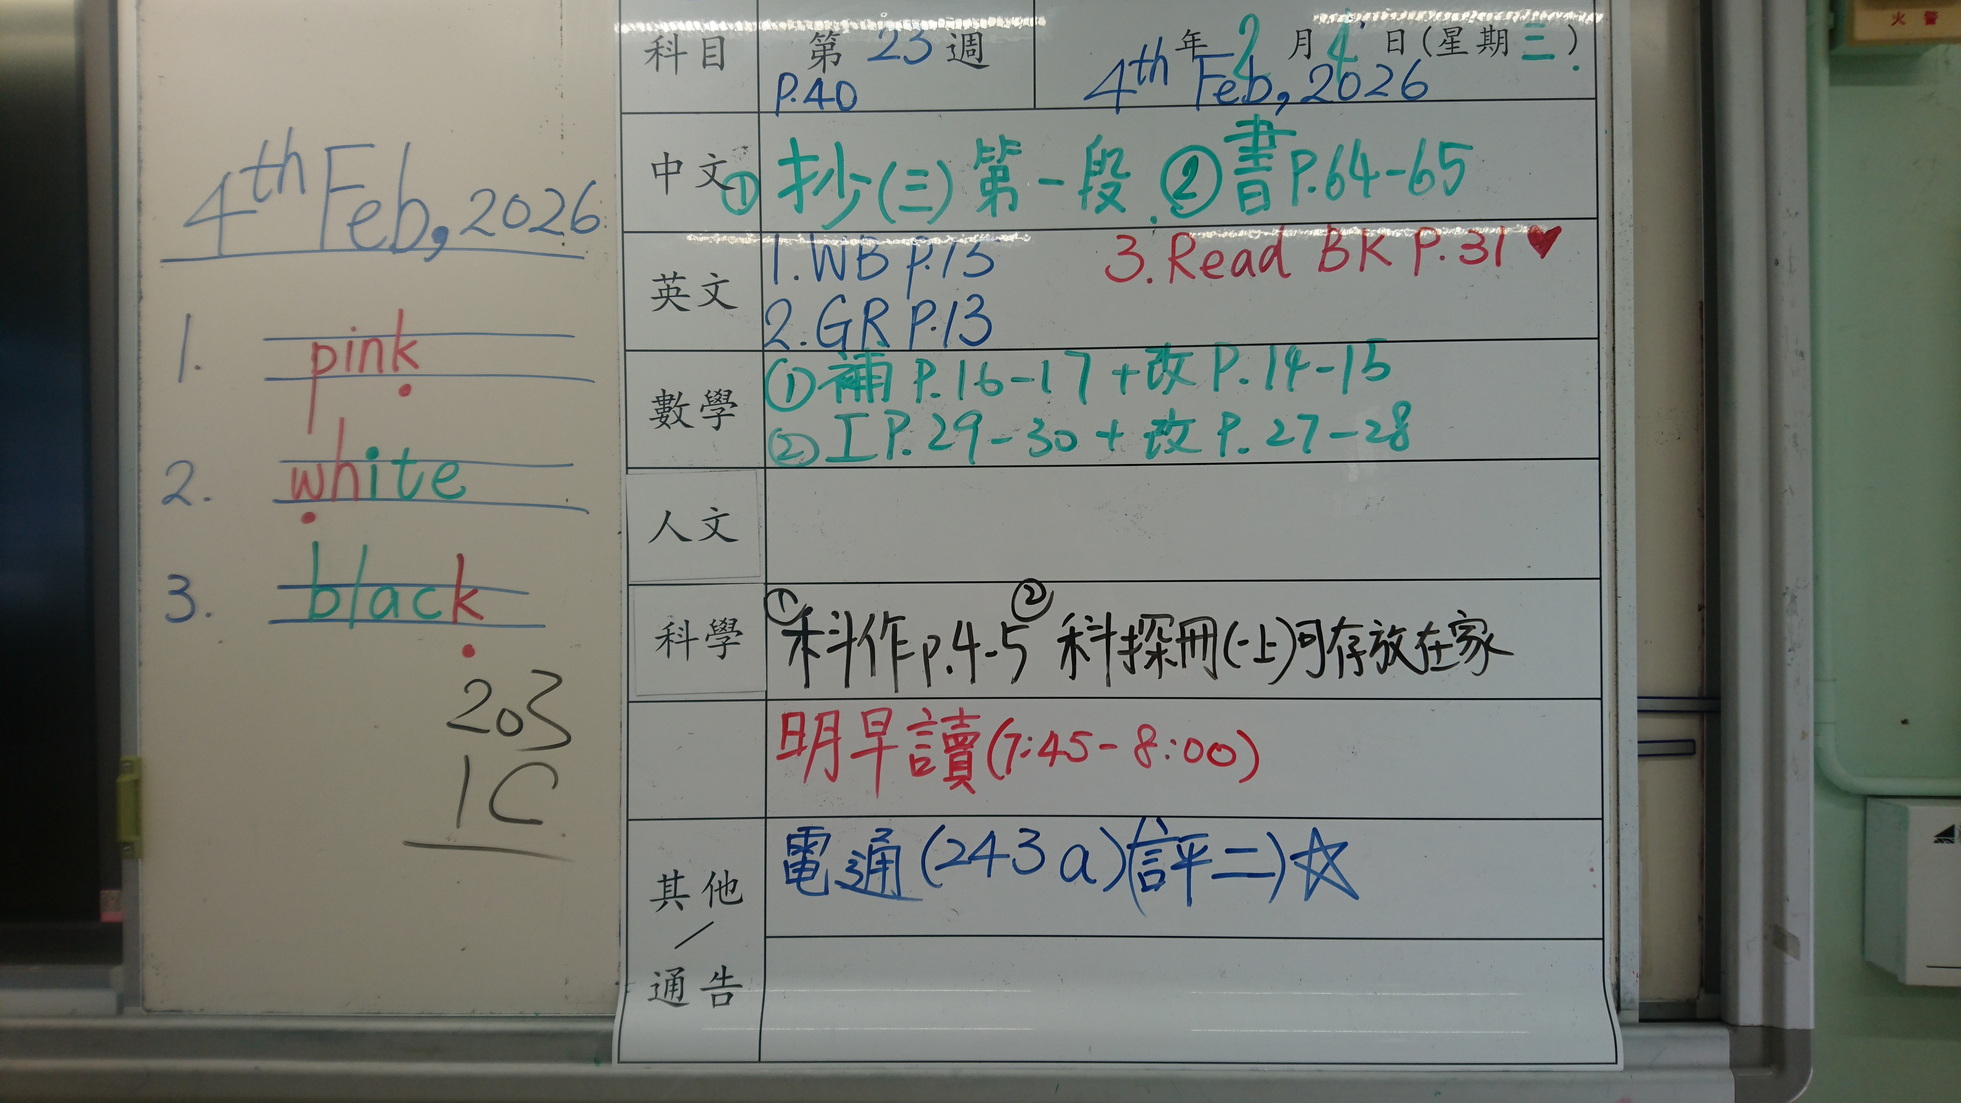 4th Feb, 2026
1. pink
2. white
3. black
203
1C
科目 第 23 週 年 2 月 4 日(星期三)
P.40 4th Feb, 2026
中文 ① 抄(三)第一段 ② 書P.64-65
英文
1. WB P.13 3. Read BK P.31 ♥
2. GR P.13
數學
① 補 P.16-17 + 改 P.14-15
② 工P.29-30 + 改 P.27-28
人文
科學 ①科作p.4-5 ②科探冊(一上)可存放在家
明早讀(7:45-8:00)
其他/通告
電通(243a)(評二)☆
火警